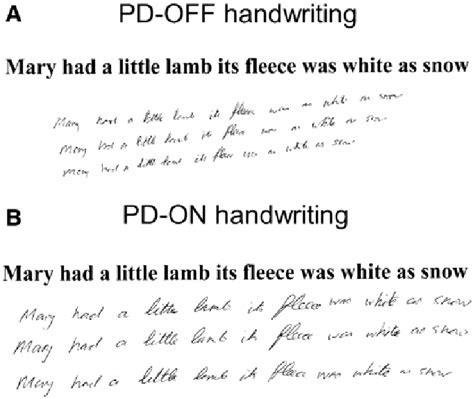 A PD-OFF handwriting
Mary had a little lamb its fleece was white as snow
Mary had a little lamb its fleece was as white as snow
Mary had a little lamb its fleece was as white as snow
Mary had a little lamb its fleece was as white as snow
B PD-ON handwriting
Mary had a little lamb its fleece was white as snow
Mary had a little lamb its fleece was white as snow
Mary had a little lamb its fleece was white as snow
Mary had a little lamb its fleece was white as snow